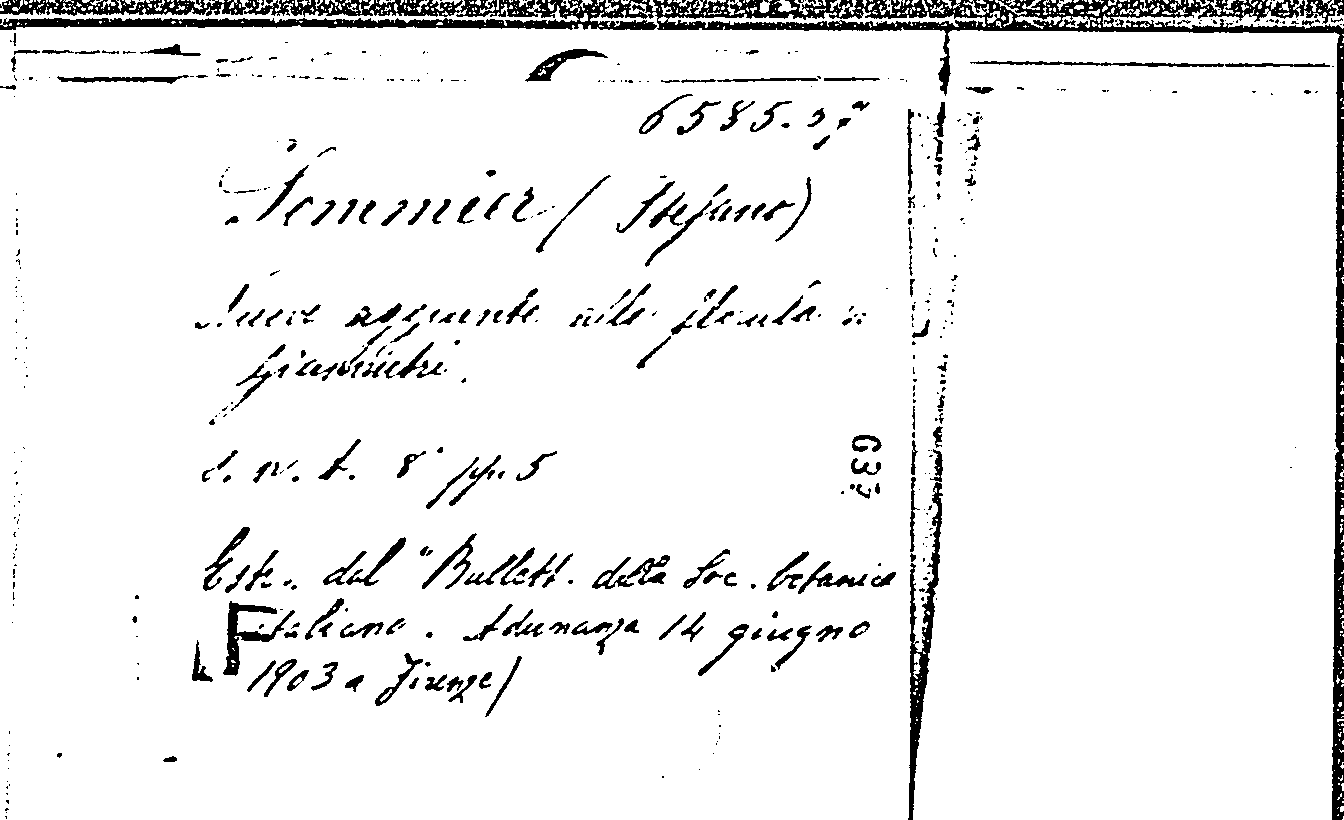 6585.27
Sommier (Stefano)
Nuove aggiunte alla florula di
Giannutri.
s. n. t. 8° pp. 5
Estr. dal "Bullett. della Soc. botanica
italiana. Adunanza 14 giugno
1903 a Firenze)